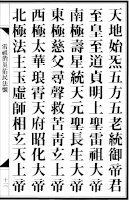 天地始炁五方五老統御帝君
至皇至道貞明上聖雷祖大帝
南極壽星統天元聖長生大帝
東極慈父尋聲救苦青玄上帝
西極太華琅霄天府昭化大帝
北極法主玉虛師相玄天上帝
雷祖消災佑民法懺